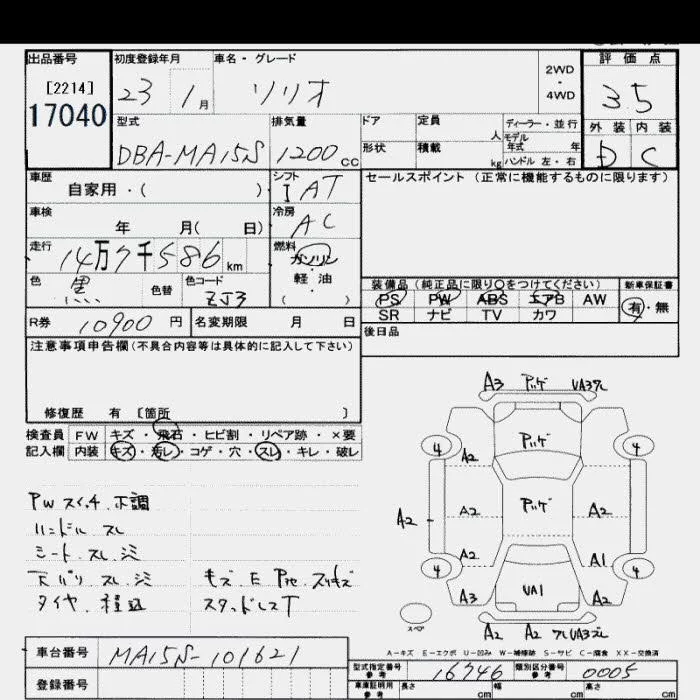 出品番号 初度登録年月 車名・グレード 評価点
[2214] 17040
23 1月 ソリオ
2WD ・ 4WD
3.5
外装 内装
D C
型式 排気量 ドア 定員 人 ディーラー・並行
モデル年式 年
DBA-MA15S 1200cc 形状 積載 kg ハンドル 左・右
車歴 シフト セールスポイント（正常に機能するものに限ります）
自家用・( ) IAT
車検 冷房
年 月( 日) AC
走行 燃料
14万7千586km ガソリン
色 色替 色コード 軽油
黒 ZJ3 ( )
装備品（純正品に限り○をつけてください） 新車保証書
PS PW ABS エアB AW 有・無
SR ナビ TV カワ
R券 10900円 名変期限 月 日 後日品
注意事項申告欄（不具合内容等は具体的に記入して下さい）
修復歴 有 〔箇所 〕
検査員 FW キズ・飛石・ヒビ割・リペア跡・×要
記入欄 内装 キズ・汚レ・コゲ・穴・スレ・キレ・破レ
PWスイッチ不調
ハンドル スレ
シート スレ シミ
天バリ スレ シミ キズ E
タイヤ
A3 UA3
4 4
A2
A2 A2 A2
A2 A1
4 4
A3 UA1 A2
スペア
A2 A2 UA3
A-キズ E-エクボ U-凹み W-補修跡 S-サビ C-腐食 XX-交換済
車台番号 MA15S-101621
型式指定番号 参考 16746 類別区分番号 参考 0005
登録番号
車庫証明用 参考 長さ cm 幅 cm 高さ cm